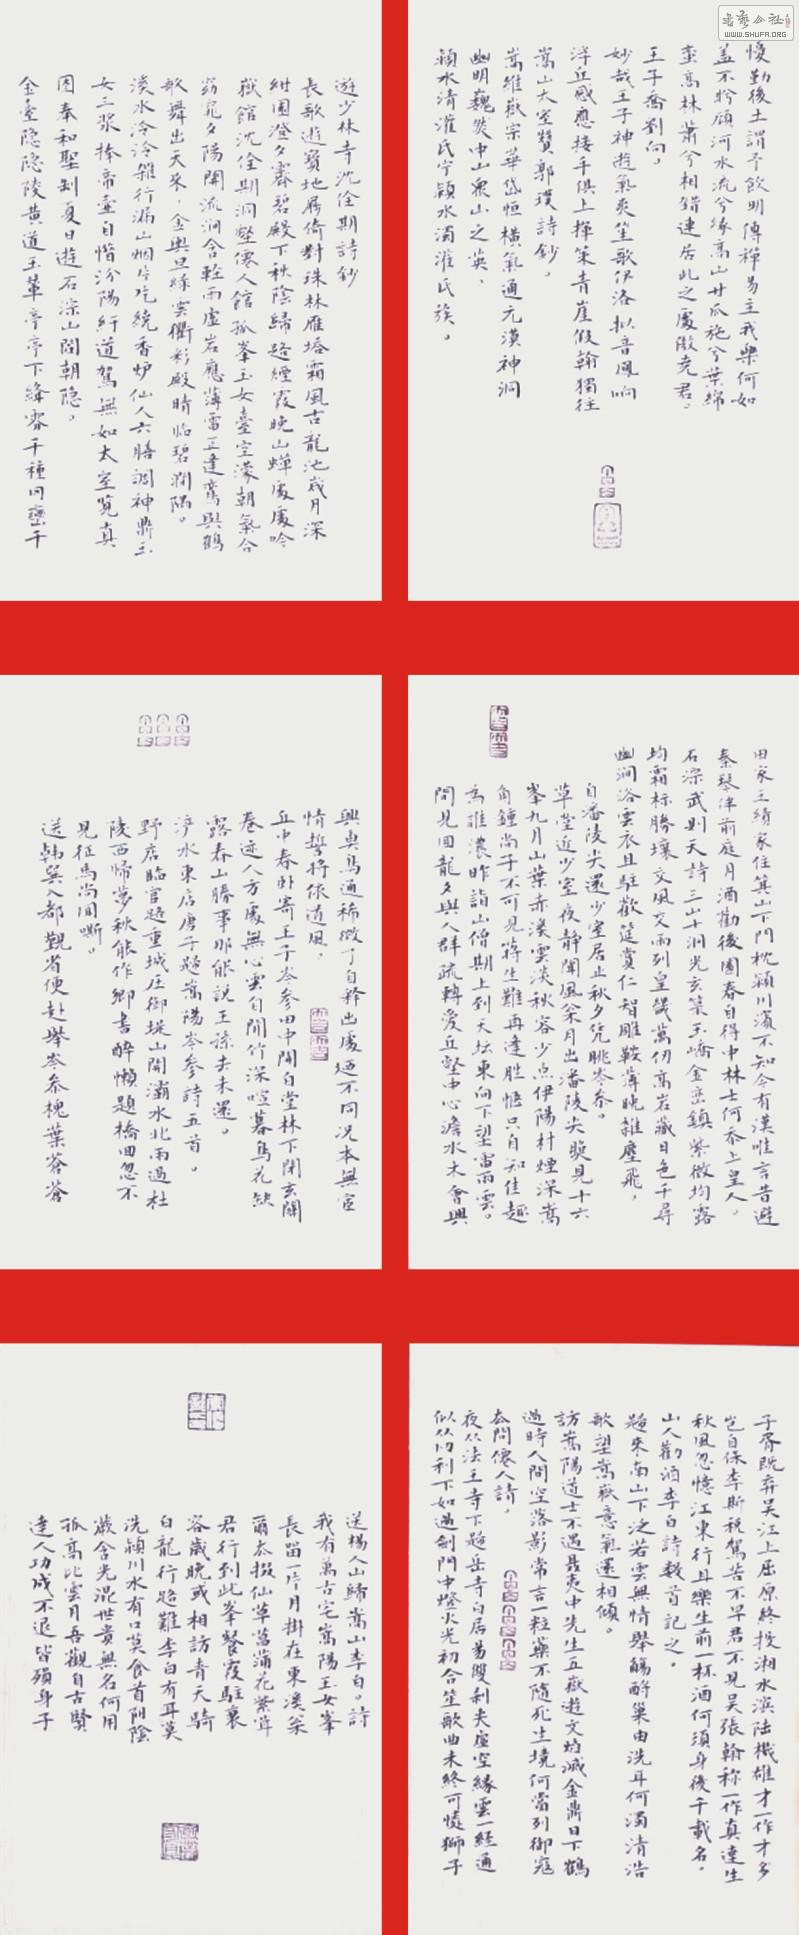 書藝公社
WWW.SHUFA.ORG
慢勤後土謂予飲明傳禪易主我樂何如
蓋不矜顧河水流兮緣高山甘瓜施兮葉綿
蠻高林蕭兮相錯連居此之處傲堯君。
王子喬劉向。
妙哉王子神遊氣爽笙歌伊洛拟音鳳响
浮丘感應接手俱上揮策青崖假翰獨往
嵩山太室贊郭璞詩鈔。
嵩維嶽宗華岱恒橫氣通元漠神洞
幽明巍然中山衆山之英。
潁水清灌氏寧潁水濁灌氏族。
遊少林寺沈佺期詩鈔
長歌遊寶地屧倚對珠林雁塔霜風古龍池歲月深
紺園澄夕霽碧殿下秋陰歸路煙霞晚山蟬處處吟
嶽館沈佺期洞壑僊人館孤峯玉女臺空濛朝氣合
窈窕夕陽開流澗含輕雨虛岩應薄雷正逢鸞與鶴
歌舞出天來。金輿旦緑雲衢彩殿晴臨碧澗隅。
淡水泠泠雜行漏山烟片片繞香炉仙人六膳調神鼎玉
女三漿捧帝壷自惜汾陽紆道駕無如太室覧真
圖奉和聖製夏日遊石淙山閻朝隐。
金臺隐隐陵黄道玉輦亭亭下絳雰千種冈巒千
田家王績家住箕山下門枕潁川濱不知今有漢唯言昔避
秦琴伴前庭月酒勸後園春自得中林士何忝上皇人。
石淙武则天詩三山十洞光玄籙玉嶠金巒鎮紫微均露
均霜标勝壤交風交雨列皇畿萬仞高岩藏日色千尋
幽涧浴雲衣且駐歡筵賞仁智雕鞍薄晚雜塵飛。
自潘陵尖還少室居止秋夕凭眺岑参。
草堂近少室夜静聞風松月出潘陵尖映見十六
峯九月山葉赤溪雲淡秋容少点伊陽村煙深嵩
角鍾尚子不可見蒋生難再逢胜愜只自知佳趣
為誰濃昨詣山僧期上到天坛東向下望雷雨雲。
間見回龍夕與人群疏轉愛丘壑中心澹水木會興
與魚鳥通稀微了自釋出處迺不同况本無宦
情誓将依道風。
丘中春卧寄王子岑参田中開白堂林下閉玄關
卷迹人方處無心雲自閒竹深喧暮鳥花缺
露春山勝事那能説王孫去未還。
浐水東店唐子趂嵩陽岑参詩五首。
野店临官路重城压御堤山開灞水北雨過杜
陵西帰夢秋能作鄉書醉懶題橋回忽不
見征馬尚聞嘶。
送韩巽入都觐省便赴舉岑参槐葉蒼蒼
子胥既弃吴江上屈原終投湘水濱陆機雄才一作才多
岂自保李斯税駕苦不早君不見吴張翰称一作真達生
秋風忽憶江東行且樂生前一杯酒何須身後千載名。
山人勸酒李白詩数首記之。
趂來南山下泛若雲無情舉觞酹巢由洗耳何濁清浩
歌望嵩嶽意氣還相傾。
訪嵩陽道士不遇聂夷中先生五嶽遊文焰滅金鼎日下鶴
過時人間空落影常言一粒藥不隨死生境何當列御寇
去問僊人請。
夜从法王寺下趂岳寺白居易雙剎夹虚空緣雲一經通
似从忉利下如過劍門中燈火光初合笙歌曲未終可憐獅子
送楊人山歸嵩山李白。詩
我有萬古宅嵩陽玉女峯
長畱一片月掛在東溪松
爾去掇仙草菖蒲花紫茸
君行到此峯餐霞駐衰
容歲晚或相訪青天騎
白龍行路難李白有耳莫
洗潁川水有口莫食首阳陰
蕨含光混世貴無名何用
孤高比雲月吾觀自古賢
達人功成不退皆殞身子